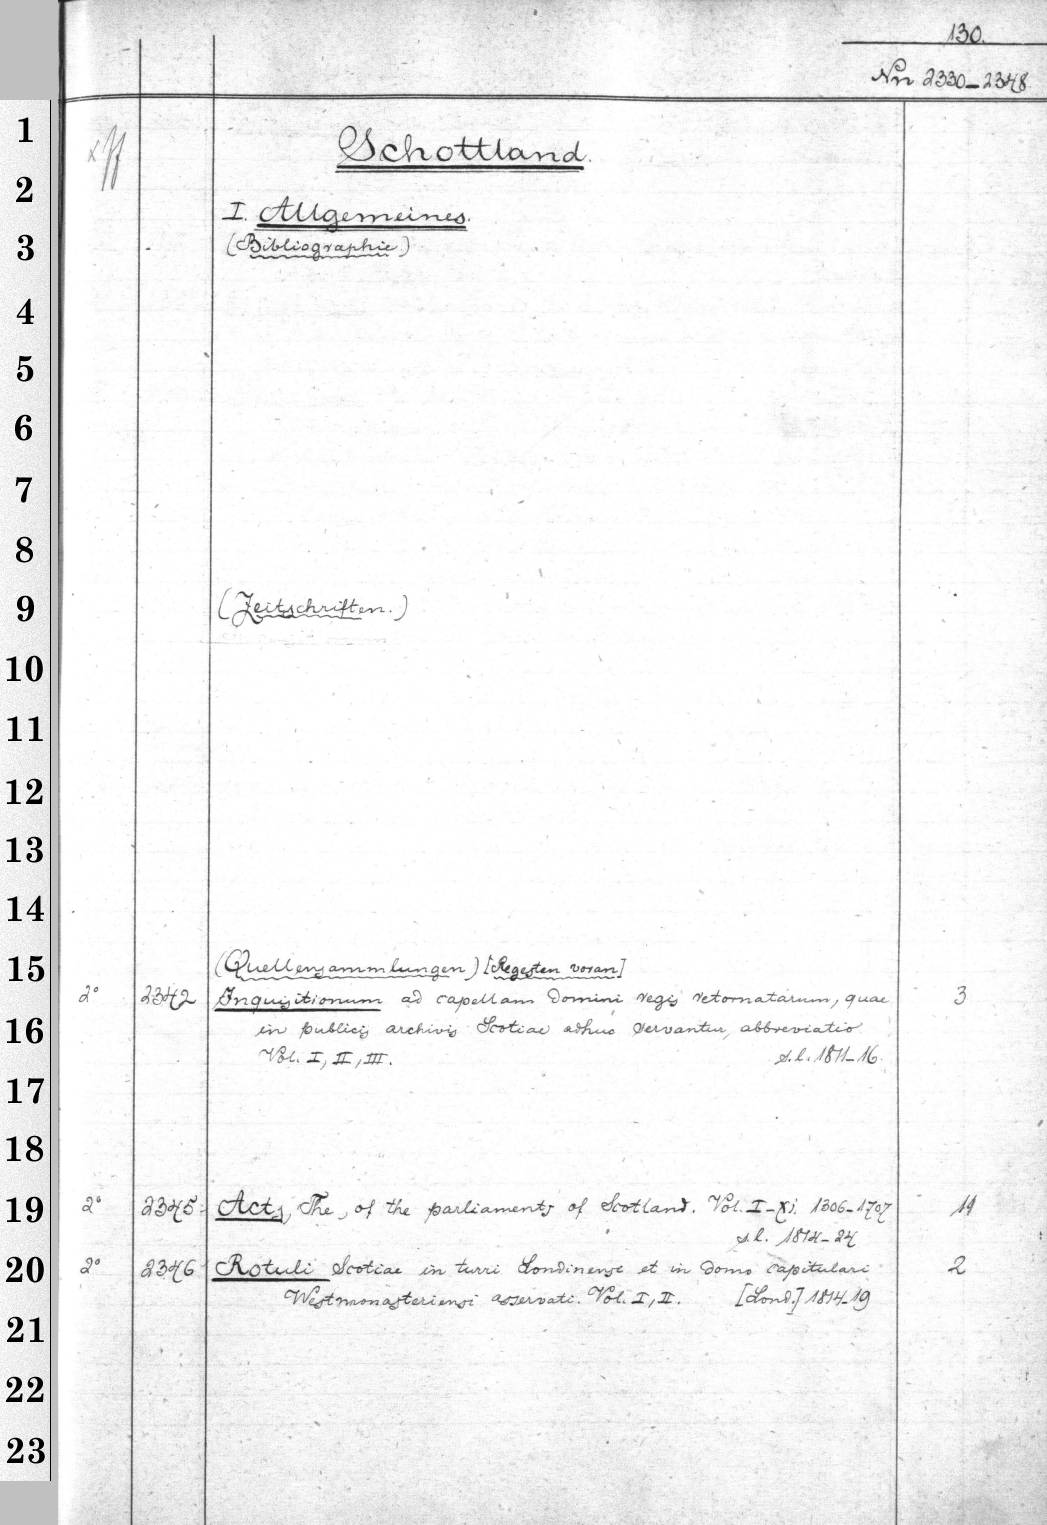 130.
Nrr 2330-2348
1
Schottland.
2
I. Allgemeines.
3
(Bibliographie.)
4
5
6
7
8
9
(Zeitschriften.)
10
11
12
13
14
15
(Quellensammlungen) [Regesten voran]
2° 2342 Inquisitionum ad capellam domini regis retornatarum, quae 3
16
in publicis archivis Scotiae adhuc servantur, abbreviatio
Vol. I, II, III. s. l. 1811-16.
17
18
19
2° 2345 Acts, The, of the parliaments of Scotland. Vol. I-XI. 1306-1707 11
s. l. 1814-24
20
2° 2346 Rotuli Scotiae in turri Londinensi et in domo capitulari 2
Westmonasteriensi asservati. Vol. I, II. [Lond.] 1814-19
21
22
23